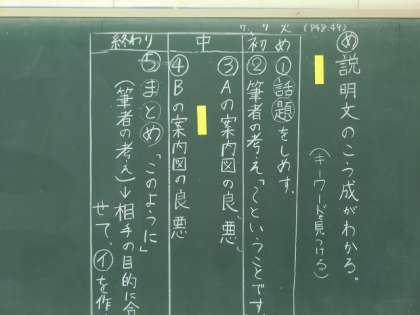 7.7 火 (P48.49)
め 説明文のこう成がわかる。
(キーワードを見つける)
初め
①話題をしめす。
②筆者の考え「〜ということです
中
③Aの案内図の良、悪、
④Bの案内図の良、悪
終わり
⑤まとめ「このように」
(筆者の考え)→相手の目的に合
せて、イを作